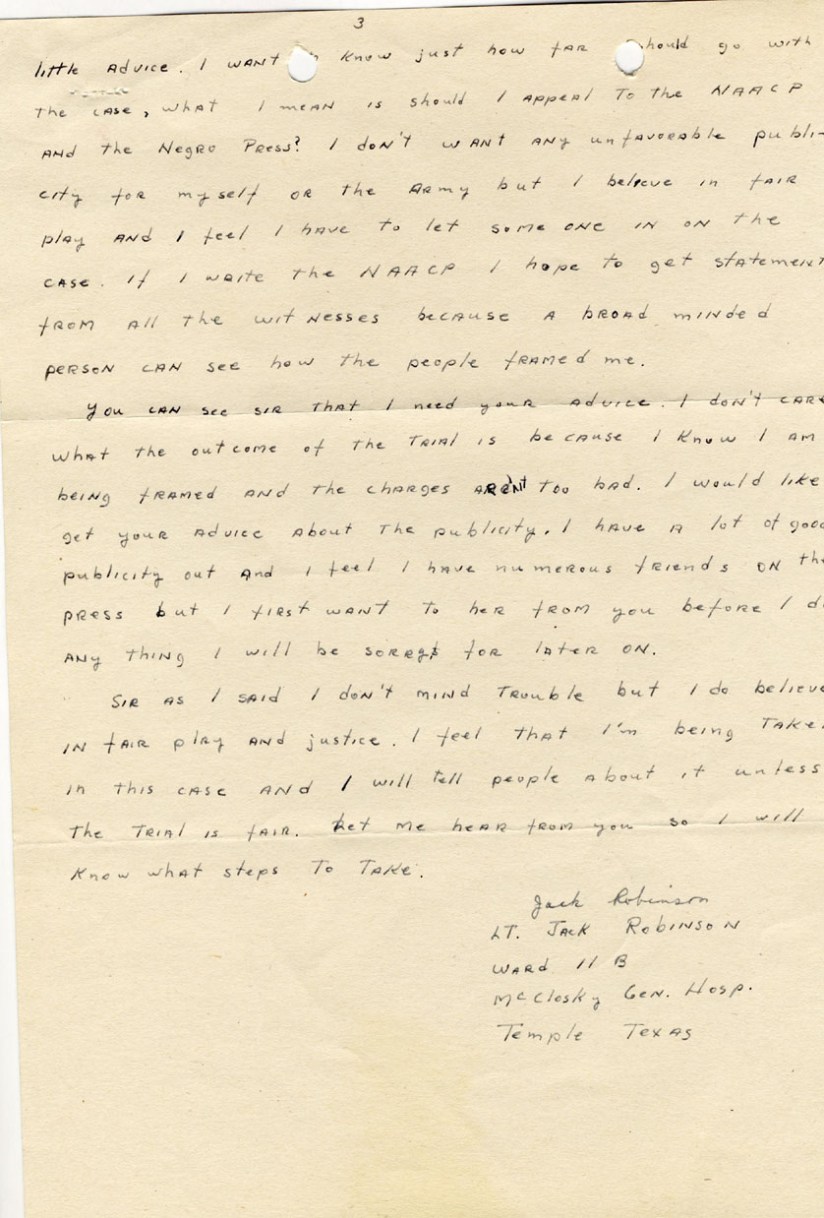 3
little Advice. I want know just how far should go with
the case, what I mean is should I appeal to the NAACP
and the Negro Press? I don't want any unfavorable publi-
city for myself or the Army but I believe in fair
play and I feel I have to let some one in on the
case. If I write the NAACP I hope to get statement
from all the witnesses because a broad minded
person can see how the people framed me.
You can see sir that I need your advice. I don't care
what the outcome of the trial is because I know I am
being framed and the charges aren't too bad. I would like
get your advice about the publicity. I have a lot of good
publicity out and I feel I have numerous friends on the
press but I first want to her from you before I do
any thing I will be sorry for later on.
Sir as I said I don't mind trouble but I do believe
in fair play and justice. I feel that I'm being taken
in this case and I will tell people about it unless
the trial is fair. Let me hear from you so I will
know what steps to take.
Jack Robinson
Lt. Jack Robinson
Ward 11 B
McClosky Gen. Hosp.
Temple Texas